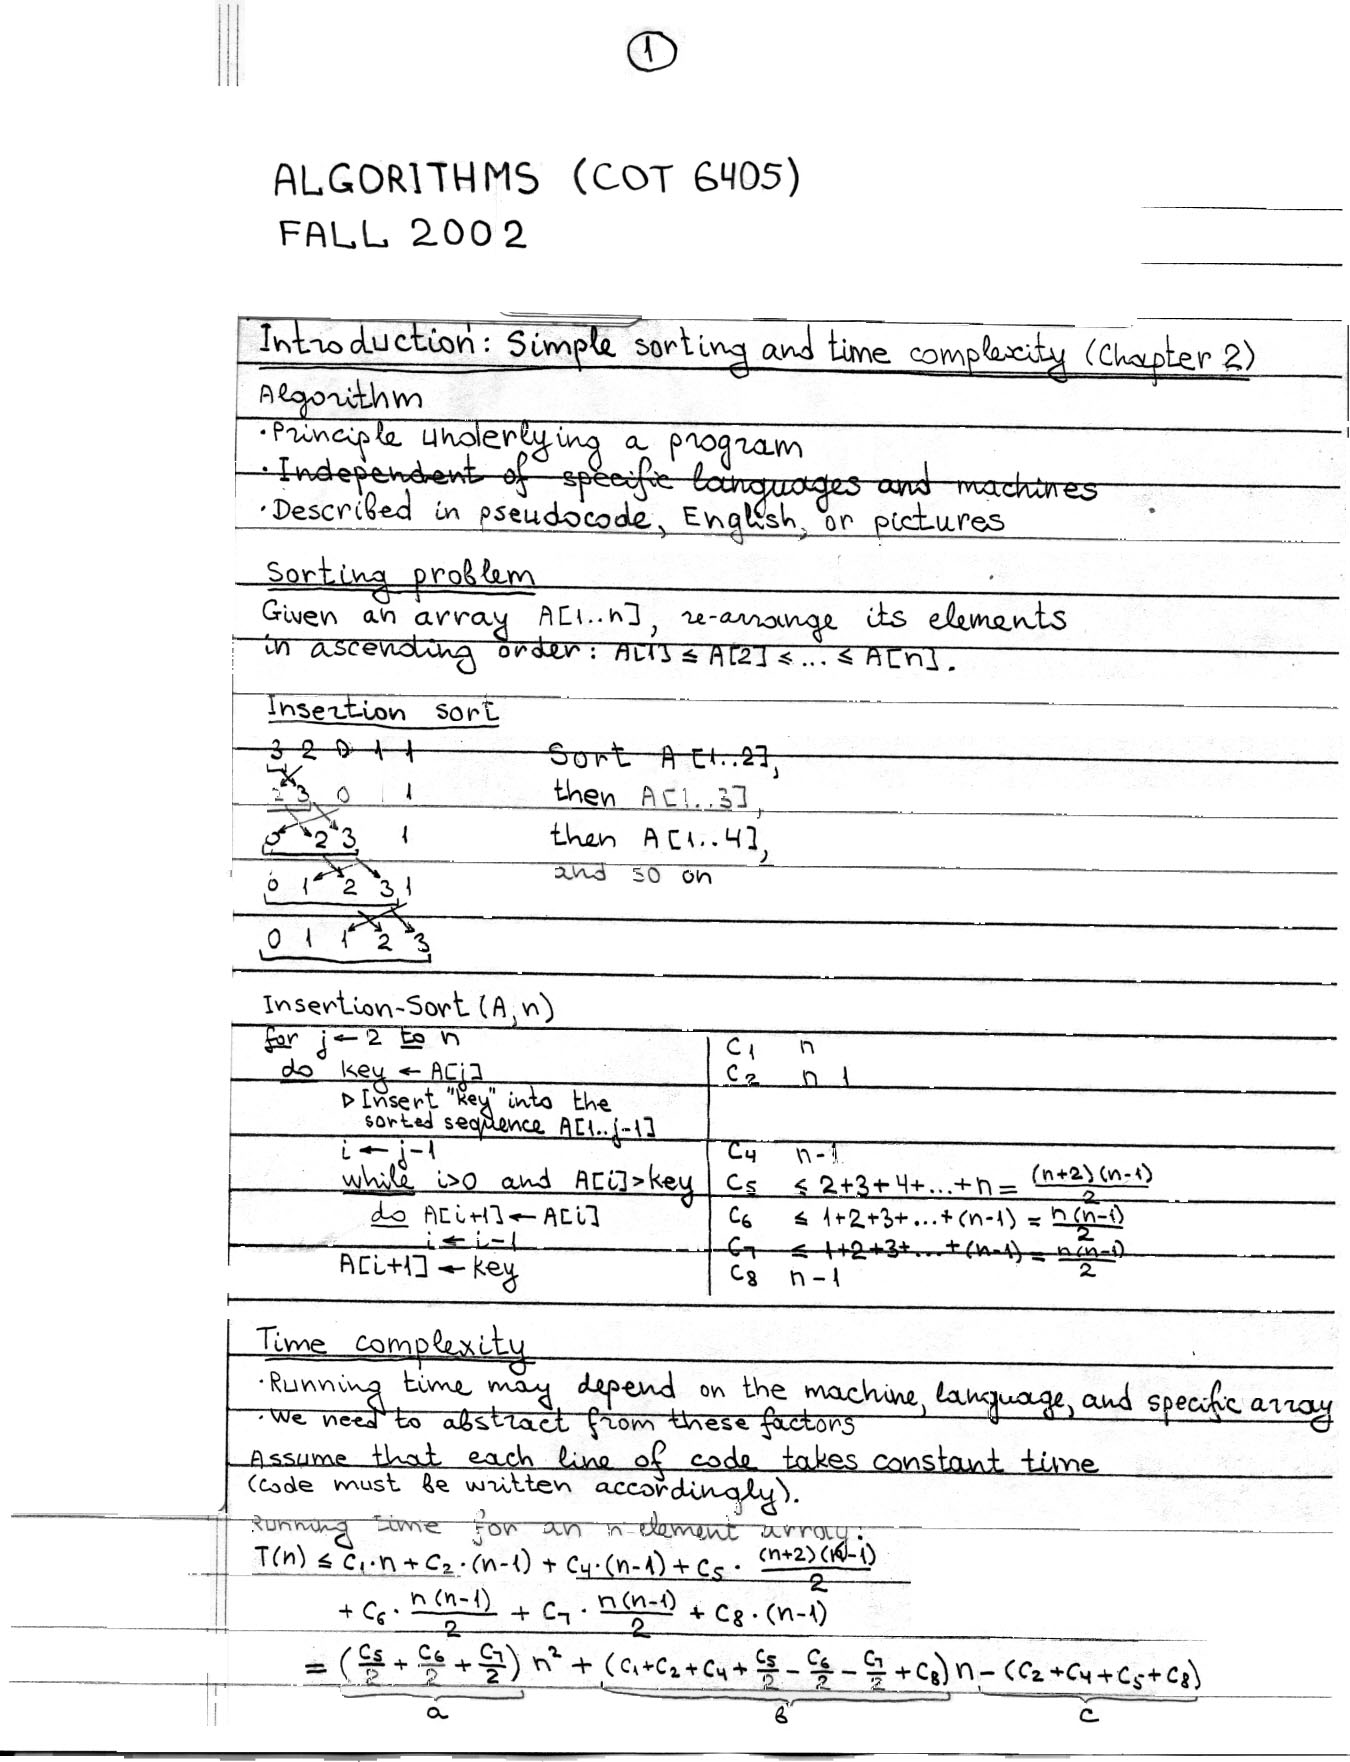 1
ALGORITHMS (COT 6405)
FALL 2002
Introduction: Simple sorting and time complexity (Chapter 2)
Algorithm
· Principle underlying a program
· Independent of specific languages and machines
· Described in pseudocode, English, or pictures
Sorting problem
Given an array A[1..n], re-arrange its elements
in ascending order: A[1] ≤ A[2] ≤ ... ≤ A[n].
Insertion sort
3 2 0 1 1 Sort A [1..2],
2 3 0 1 then A[1..3],
0 2 3 1 then A[1..4],
0 1 2 3 1 and so on
0 1 1 2 3
Insertion-Sort (A, n)
for j ← 2 to n C1 n
do key ← A[j] C2 n 1
▷ Insert "key" into the
sorted sequence A[1..j-1]
i ← j-1 C4 n-1
while i>0 and A[i]>key C5 ≤ 2+3+4+...+n = (n+2)(n-1)/2
do A[i+1] ← A[i] C6 ≤ 1+2+3+...+(n-1) = n(n-1)/2
i ← i-1 C7 ≤ 1+2+3+...+(n-1) = n(n-1)/2
A[i+1] ← key C8 n-1
Time complexity
· Running time may depend on the machine, language, and specific array
· We need to abstract from these factors
Assume that each line of code takes constant time
(code must be written accordingly).
Running time for an n-element array:
T(n) ≤ C1·n + C2·(n-1) + C4·(n-1) + C5·(n+2)(n-1)/2
+ C6·n(n-1)/2 + C7·n(n-1)/2 + C8·(n-1)
= (C5/2 + C6/2 + C7/2) n² + (C1+C2+C4+C5/2-C6/2-C7/2+C8) n - (C2+C4+C5+C8)
a b c